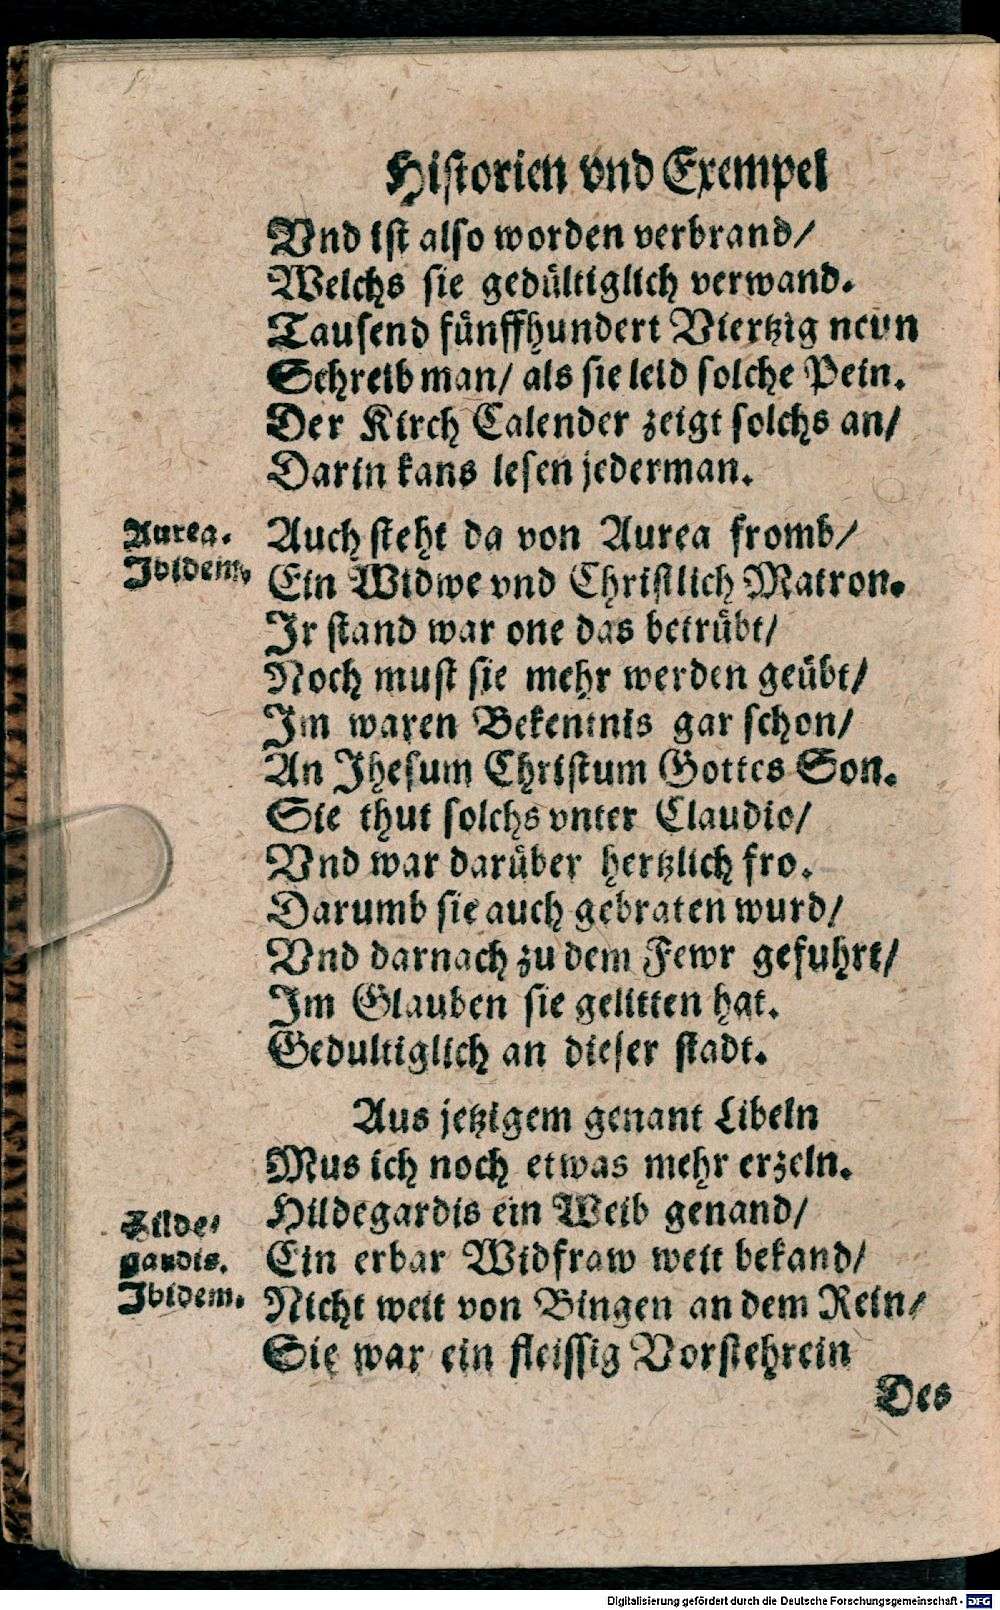 Historien vnd Exempel
Vnd ist also worden verbrand/
Welchs sie gedültiglich verwand.
Tausend fünffhundert Viertzig neun
Schreib man/ als sie leid solche Pein.
Der Kirch Calender zeigt solchs an/
Darin kans lesen jederman.
Aurea.
Ibidem.
Auch steht da von Aurea fromb/
Ein Widwe vnd Christlich Matron.
Ir stand war one das betrübt/
Noch must sie mehr werden geübt/
Im waren Bekentnis gar schon/
An Jhesum Christum Gottes Son.
Sie thut solchs vnter Claudio/
Vnd war darüber hertzlich fro.
Darumb sie auch gebraten wurd/
Vnd darnach zu dem Fewr gefuhrt/
Im Glauben sie gelitten hat.
Gedultiglich an dieser stadt.
Aus jetzigem genant Libeln
Mus ich noch etwas mehr erzeln.
Hilde-
gardis.
Ibidem.
Hildegardis ein Weib genand/
Ein erbar Widfraw weit bekand/
Nicht weit von Bingen an dem Rein/
Sie war ein fleissig Vorstehrein
Des
Digitalisierung gefördert durch die Deutsche Forschungsgemeinschaft - DFG